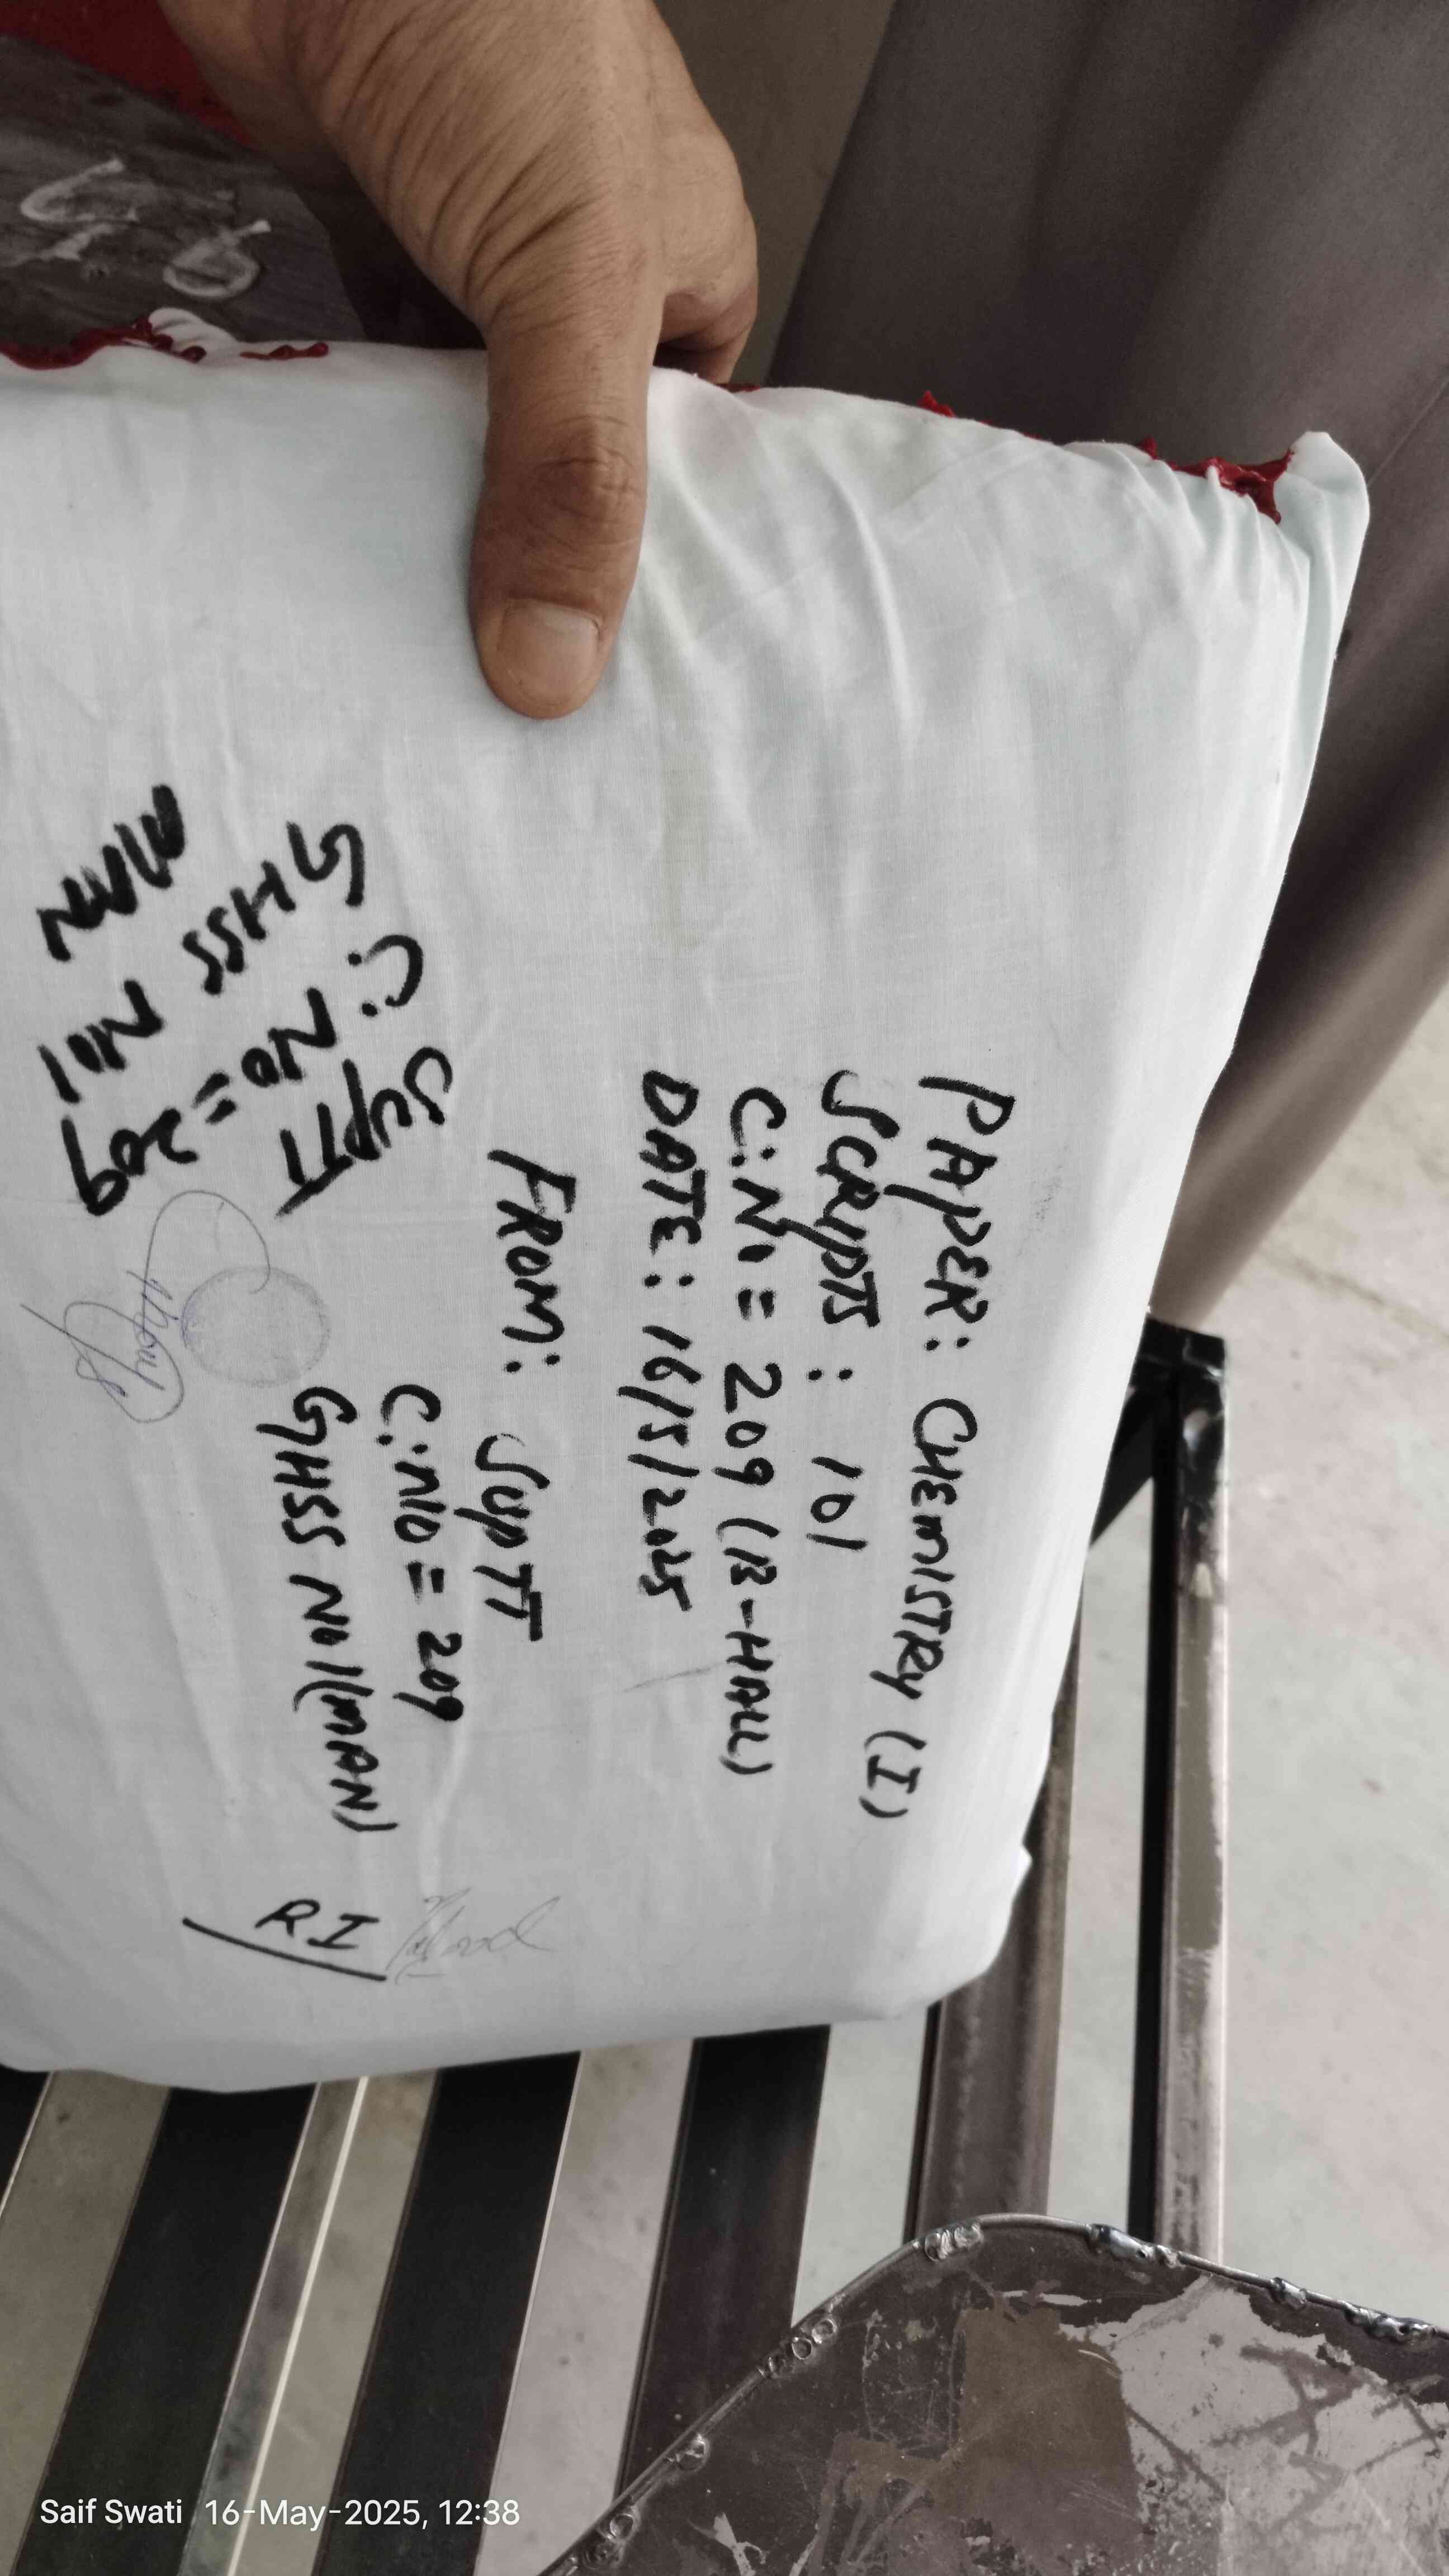 PAPER: CHEMISTRY (I)
SCRIPTS: 101
C:No = 209 (B-HALL)
DATE: 16/5/2025
FROM: SUPTT
C:NO = 209
GHSS No 1 (MAN)
RI
SUPTT
C: No = 209
GHSS No 1
MAN
Saif Swati 16-May-2025, 12:38